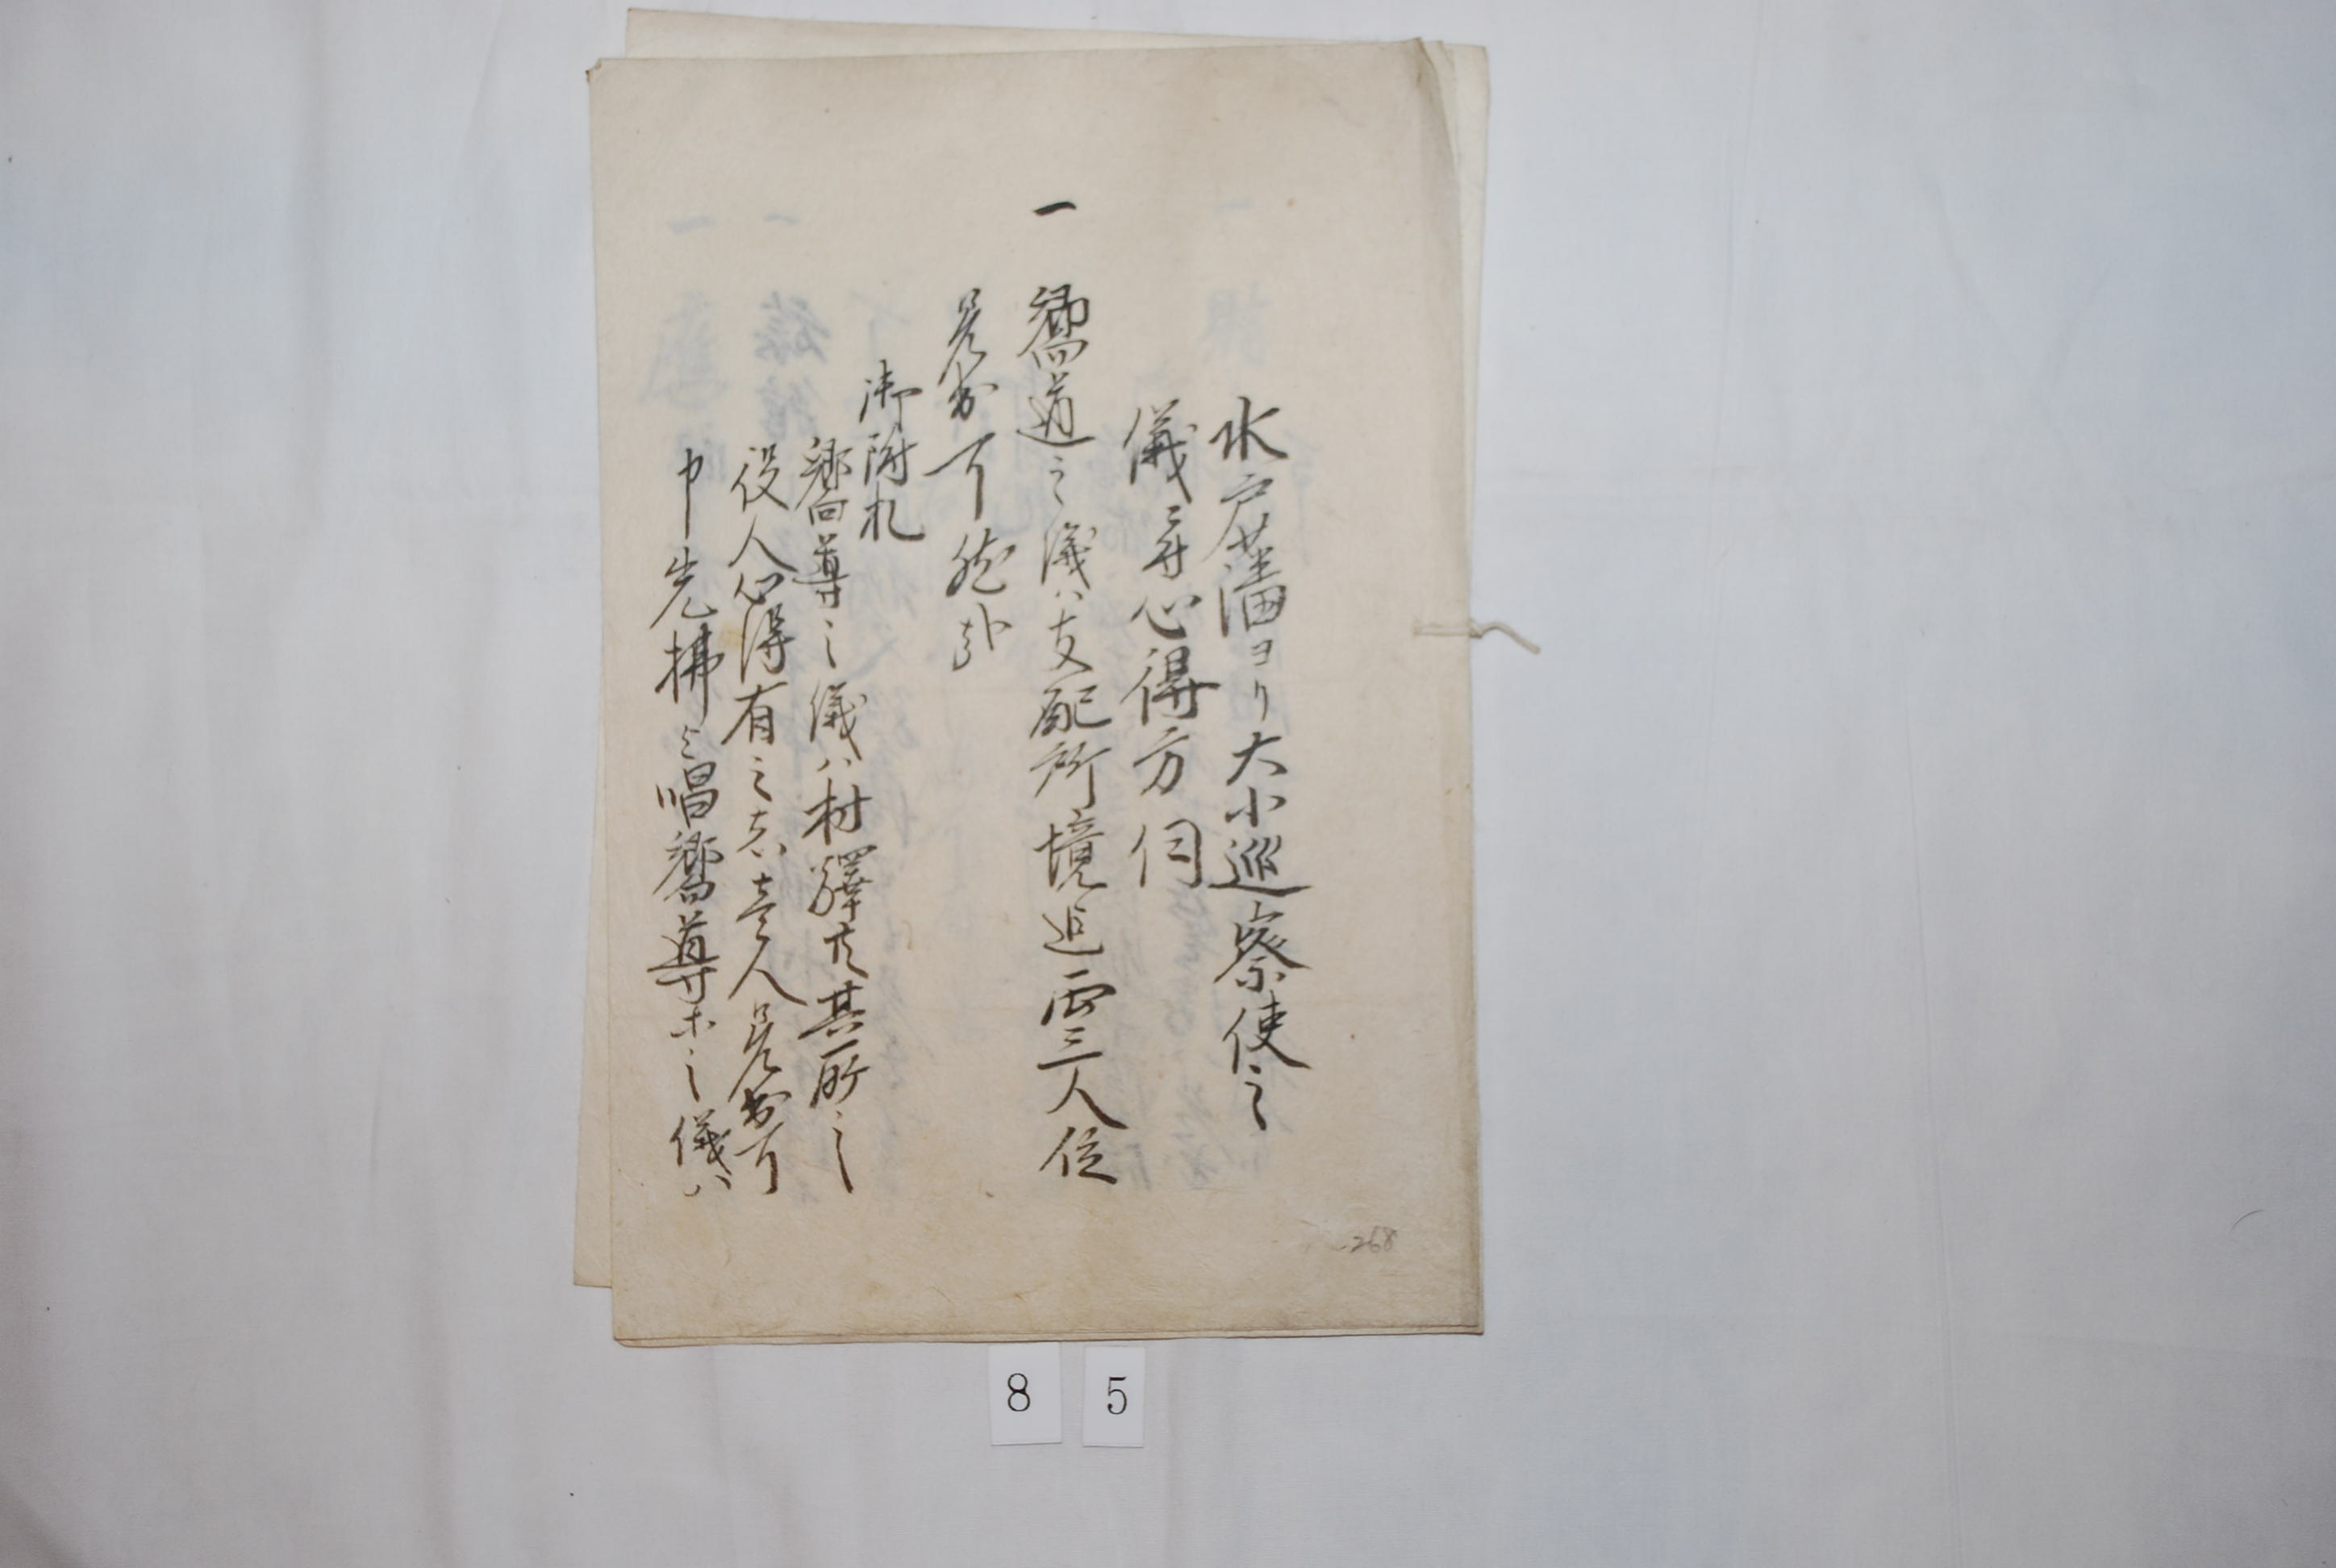 水戸藩ヨリ大小巡察使之
儀ニ付心得方伺
一 嚮道之儀ハ支配所境迄両三人位
差出可然哉
御附札
嚮導之儀ハ村驛共其所之
役人心得有之者壱人差出可
申先拂と唱嚮導等之儀ハ
268
8 5